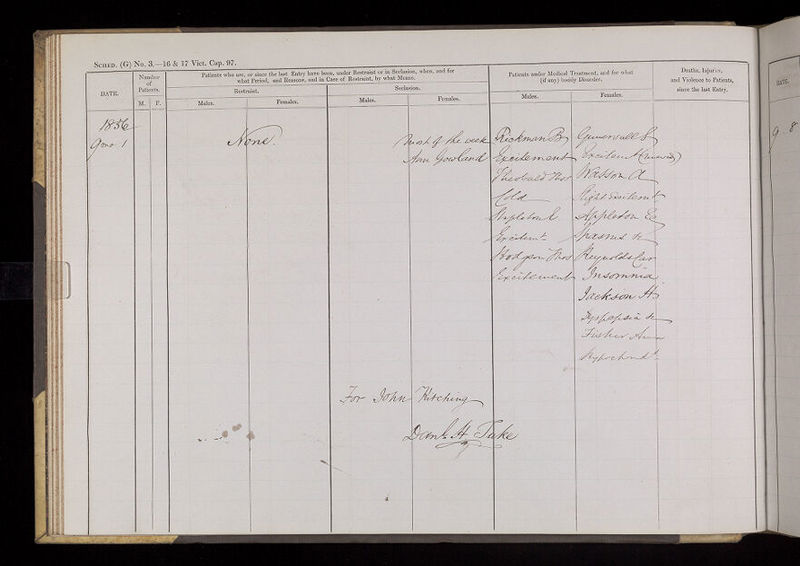 SCHED. (G) No. 3.—16 & 17 Vict. Cap. 97.
DATE.
Number of Patients.
M. F.
Patients who are, or since the last Entry have been, under Restraint or in Seclusion, when, and for
what Period, and Reasons, and in Case of Restraint, by what Means.
Restraint.
Males. Females.
Seclusion.
Males. Females.
Patients under Medical Treatment, and for what
(if any) bodily Disorder.
Males. Females.
Deaths, Injuries,
and Violence to Patients,
since the last Entry.
DATE.
1856
1
None.
most of the week
Ann Gowland
Rickman B
Excitement
Theobald Thos
Cold
Stapleton C
Excitemt
Hodgson Thos
Excitement
S
Excitemt
Watson A
Slight excitemt
Appleton E
Spasms &c
Reynolds Car
Insomnia
Jackson H
Dyspepsia &c
Fisher Ann
For John Kitching
Danl H Tuke
9 8